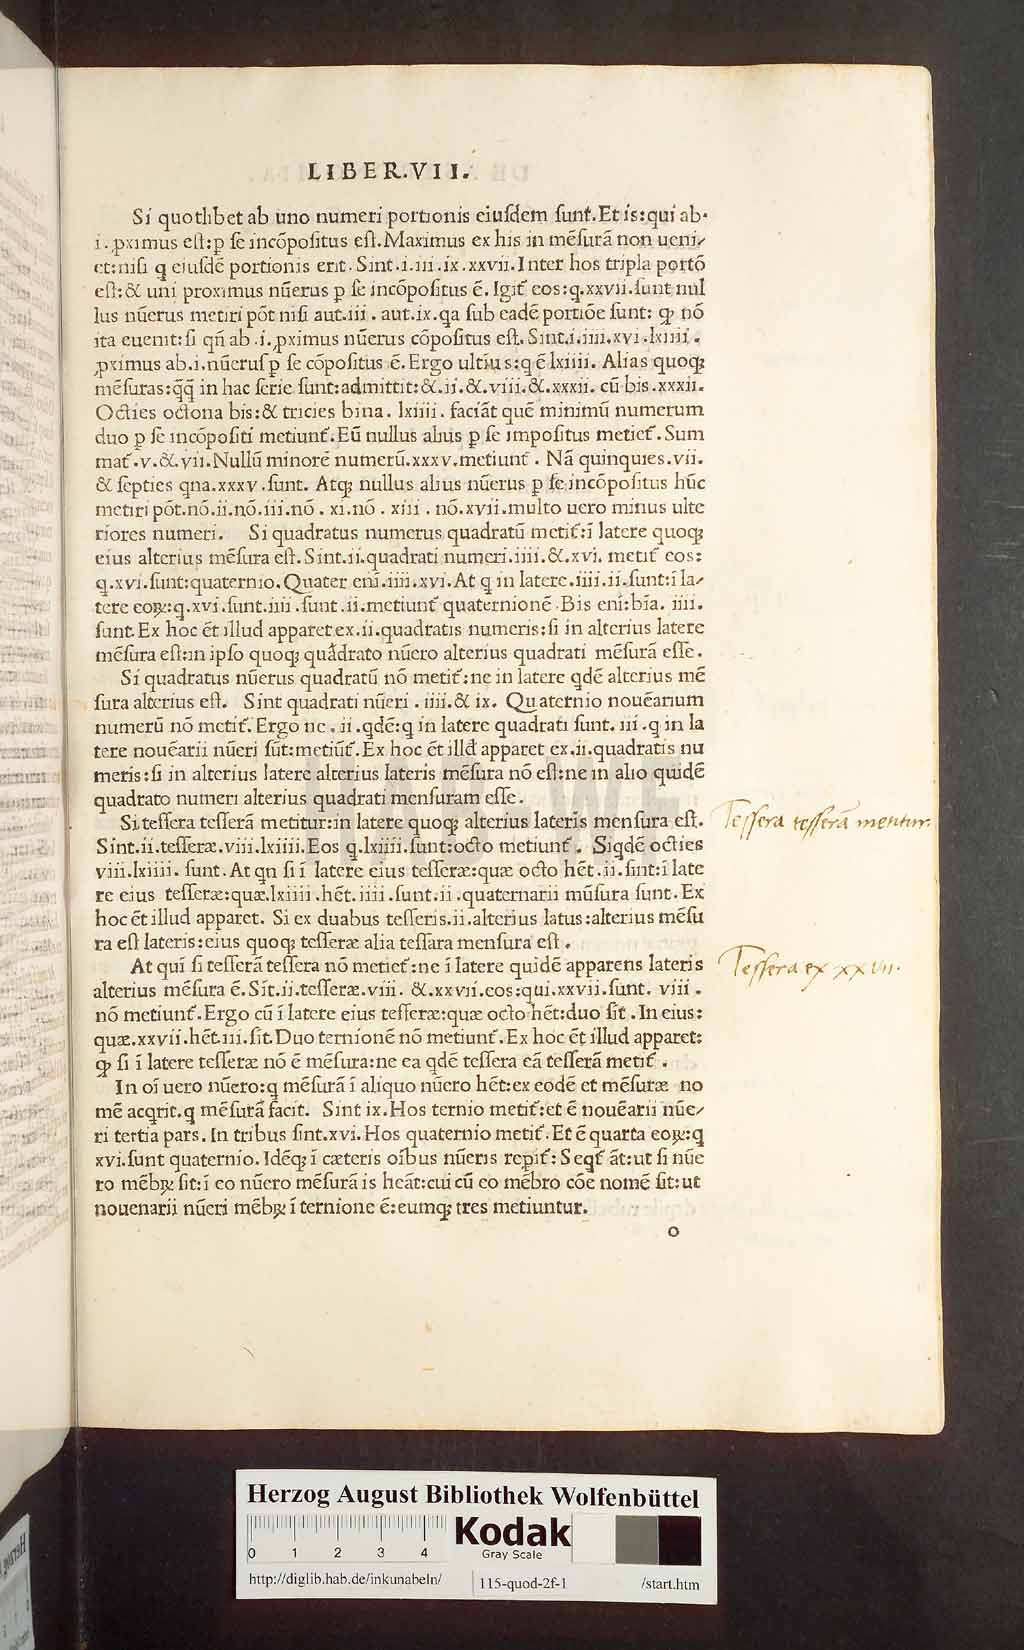 LIBER.VII.
Si quotlibet ab uno numeri portionis eiusdem sunt̃.Et is:qui ab.
i.ꝓximus est:ꝑ se incõpositus est.Maximus ex his in mẽsurã non ueni-
et:nisi q eiusdẽ portionis erit.Sint.i.iii.ix.xxvii.Inter hos tripla portõ
est:& uni proximus nũerus ꝑ se incõpositus ẽ.Igit̃ eos:q.xxvii.sunt nul
lus nũerus metiri põt nisi aut.iii.aut.ix.qa sub eadẽ portiõe sunt: ꝙ nõ
ita euenit:si qñ ab.i.ꝓximus nũerus cõpositus est.Sint.i.iiii.xvi.lxiiii.
ꝓximus ab.i.nũerus ꝑ se cõpositus ẽ.Ergo ultĩus:q ẽ lxiiii. Alias quoqꝫ
mẽsuras:q̃q̃ in hac serie sunt:admittit:&.ii.&.viii.&.xxxii. cũ bis.xxxii.
Octies octona bis:& tricies bina. lxiiii. faciãt quẽ minimũ numerum
duo ꝑ se incõpositi metiunt̃.Eũ nullus alius ꝑ se impositus metiet̃.Sum
mat̃.v.&.vii.Nullũ minorẽ numerũ.xxxv.metiunt̃. Nã quinquies.vii.
& septies qna.xxxv.sunt. Atqꝫ nullus alius nũerus ꝑ se incõpositus hũc
metiri põt.nõ.ii.nõ.iii.nõ. xi.nõ. xiii. nõ.xvii.multo uero minus ulte
riores numeri. Si quadratus numerus quadratũ metit̃:ĩ latere quoqꝫ
eius alterius mẽsura est.Sint.ii.quadrati numeri.iiii.&.xvi. metit̃ eos:
q.xvi.sunt:quaternio.Quater enĩ.iiii.xvi.At q in latere.iiii.ii.sunt:ĩ la-
tere eoꝝ:q.xvi.sunt.iiii.sunt.ii.metiunt̃ quaternionẽ.Bis enĩ:bĩa. iiii.
sunt.Ex hoc ẽt illud apparet ex.ii.quadratis numeris:si in alterius latere
mẽsura est:in ipso quoqꝫ quadrato nũero alterius quadrati mẽsurã esse.
Si quadratus nũerus quadratũ nõ metit̃:ne in latere qdẽ alterius mẽ
sura alterius est. Sint quadrati nũeri.iiii.& ix. Quaternio nouẽarium
numerũ nõ metit̃.Ergo ne.ii.qdẽ:q in latere quadrati sunt. iii.q in la
tere nouẽarii nũeri sũt:metiũt̃.Ex hoc ẽt illd apparet ex.ii.quadratis nu
meris:si in alterius latere alterius lateris mẽsura nõ est:ne in alio quidẽ
quadrato numeri alterius quadrati mensuram esse.
Si tessera tesserã metitur:in latere quoqꝫ alterius lateris mensura est.
Tessera tesserã mentur.
Sint.ii.tesseræ.viii.lxiiii.Eos q.lxiiii.sunt:octo metiunt̃. Siqdẽ octies
viii.lxiiii. sunt.At qn si ĩ latere eius tesseræ:quæ octo hẽt.ii.sint:ĩ late
re eius tesseræ:quæ.lxiiii.hẽt.iiii.sunt.ii.quaternarii mũsura sunt.Ex
hoc ẽt illud apparet. Si ex duabus tesseris.ii.alterius latus:alterius mẽsu
ra est lateris:eius quoqꝫ tesseræ alia tessara mensura est.
At qui si tesserã tessera nõ metiet̃:ne ĩ latere quidẽ apparens lateris
Tessera ex xxvii.
alterius mẽsura ẽ.Sĩt.ii.tesseræ.viii. &.xxvii.eos:qui.xxvii.sunt. viii.
nõ metiunt̃.Ergo cũ ĩ latere eius tesseræ:quæ octo hẽt:duo sĩt.In eius:
quæ.xxvii.hẽt.iii.sĩt.Duo ternionẽ nõ metiunt̃.Ex hoc ẽt illud apparet:
ꝙ si ĩ latere tesseræ nõ ẽ mẽsura:ne ea qdẽ tessera eã tesserã metit̃.
In oĩ uero nũero:q mẽsurã ĩ aliquo nũero hẽt:ex eodẽ et mẽsuræ no
mẽ acqrit.q mẽsurã facit. Sint ix.Hos ternio metit̃:et ẽ nouẽarii nũe-
ri tertia pars.In tribus sint.xvi.Hos quaternio metit̃.Et ẽ quarta eoꝝ:q
xvi.sunt quaternio.Idẽqꝫ ĩ cæteris oĩbus nũeris reꝑit̃:Seqt̃ ãt:ut si nũe
ro mẽbꝝ sit:ĩ eo nũero mẽsurã is heãt:cui cũ eo mẽbro cõe nomẽ sit:ut
nouenarii nũeri mẽbꝝ ĩ ternione ẽ:eumqꝫ tres metiuntur.
o
HAB WF
Herzog August Bibliothek Wolfenbüttel
0 1 2 3 4
Kodak
Gray Scale
http://diglib.hab.de/inkunabeln/ 115-quod-2f-1 /start.htm